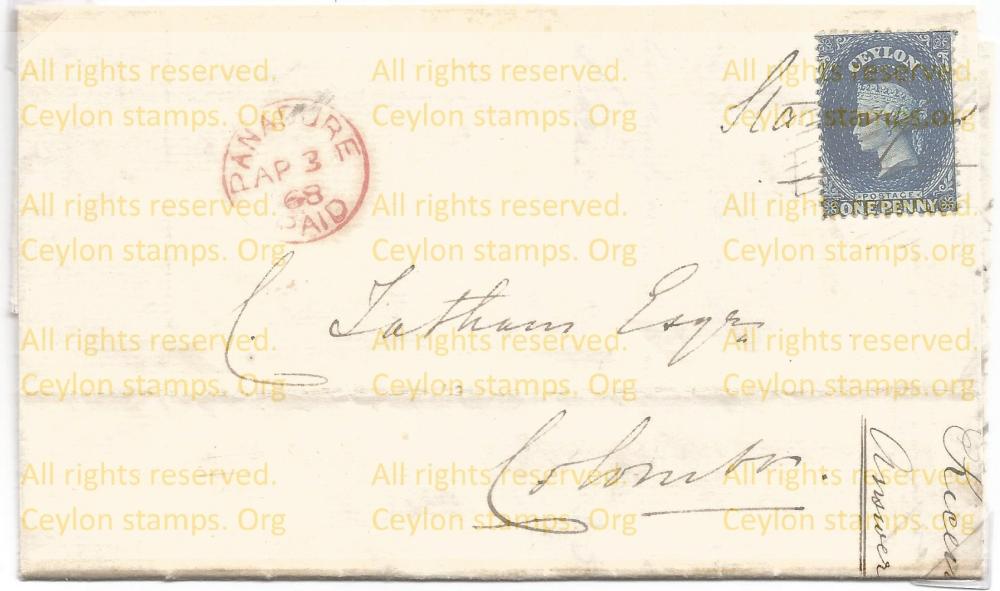 All rights reserved. All rights reserved. All rights reserved.
Ceylon stamps. Org Ceylon stamps. Org Ceylon stamps. Org
CEYLON
POSTAGE
ONE PENNY
PANADURE
AP 3
68
PAID
All rights reserved. All rights reserved. All rights reserved.
Ceylon stamps. Org Ceylon stamps. Org Ceylon stamps. Org
C. Tatham Esqr.
All rights reserved. All rights reserved. All rights reserved.
Ceylon stamps. Org Ceylon stamps. Org Ceylon stamps. Org
Colombo.
All rights reserved. All rights reserved. All rights reserved.
Ceylon stamps. Org Ceylon stamps. Org Ceylon stamps. Org
Answer